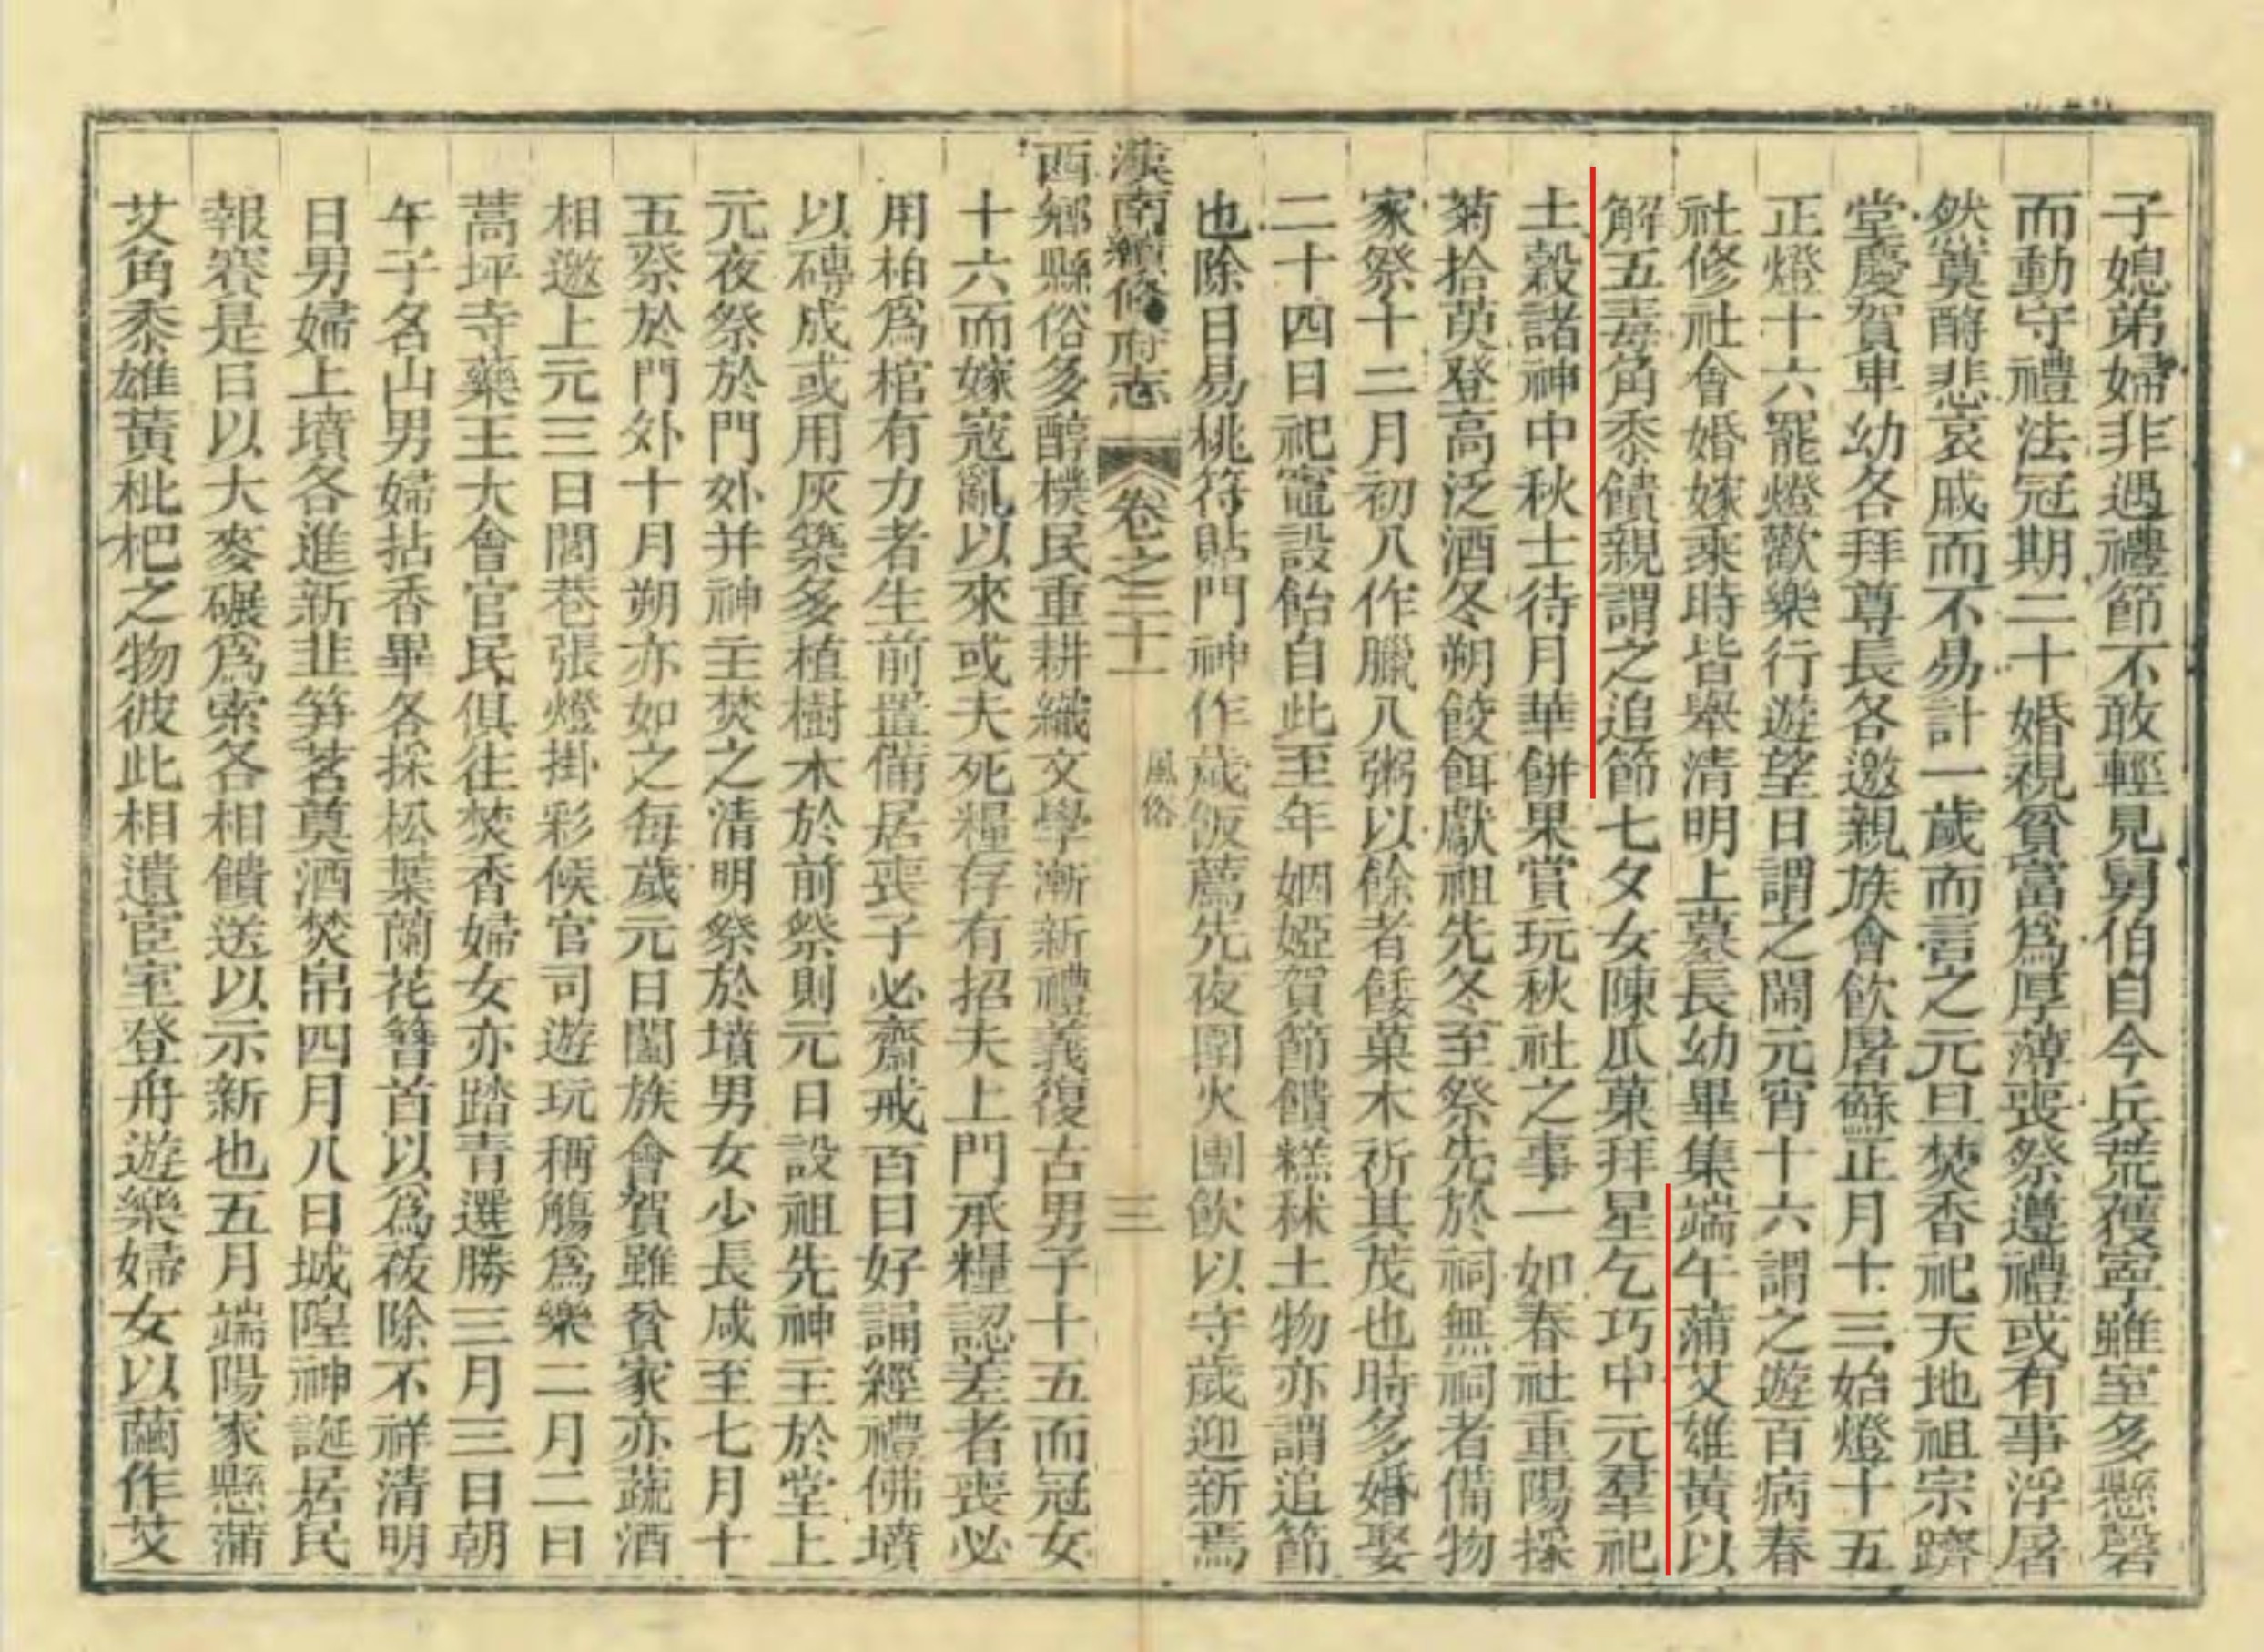 子媳弟婦非遇禮節不敢輕見舅伯自今兵荒獲寧雖室多懸磬
而動守禮法冠期二十婚視貧富爲厚薄喪祭遵禮或有事浮屠
然奠酹悲哀戚而不易計一歲而言之元旦焚香祀天地祖宗躋
堂慶賀卑幼各拜尊長各邀親族會飲屠蘇正月十三始燈十五
正燈十六罷燈歡樂行遊望日謂之鬧元宵十六謂之遊百病春
社修社會婚嫁乘時皆舉清明上墓長幼畢集端午蒲艾雄黃以
解五毒角黍饋親謂之追節七夕女陳瓜菓拜星乞巧中元羣祀
土穀諸神中秋士待月華餅果賞玩秋社之事一如春社重陽採
菊拾萸登高泛酒冬朔餃餌獻祖先冬至祭先於祠無祠者備物
家祭十二月初八作臘八粥以餘者餧菓木祈其茂也時多婚娶
二十四日祀竈設飴自此至年姻婭賀節饋糕秫土物亦謂追節
也除日易桃符貼門神作歲飯薦先夜圍火團飲以守歲迎新焉
漢南續修府志 卷之二十一 風俗 三
西鄉縣俗多醇樸民重耕織文學漸新禮義復古男子十五而冠女
十六而嫁寇亂以來或夫死糧存有招夫上門承糧認差者喪必
用柏爲棺有力者生前置備居喪子必齋戒百日好誦經禮佛墳
以磚成或用灰築多植樹木於前祭則元日設祖先神主於堂上
元夜祭於門外并神主焚之清明祭於墳男女少長咸至七月十
五祭於門外十月朔亦如之每歲元日闔族會賀雖貧家亦蔬酒
相邀上元三日閭巷張燈掛彩候官司遊玩稱觴爲樂二月二日
蒿坪寺藥王大會官民俱往焚香婦女亦踏青選勝三月三日朝
午子名山男婦拈香畢各採松葉蘭花簪首以爲祓除不祥清明
日男婦上墳各進新韭笋茗奠酒焚帛四月八日城隍神誕居民
報賽是日以大麥碾爲索各相饋送以示新也五月端陽家懸蒲
艾角黍雄黃枇杷之物彼此相遺宦室登舟遊樂婦女以繭作艾